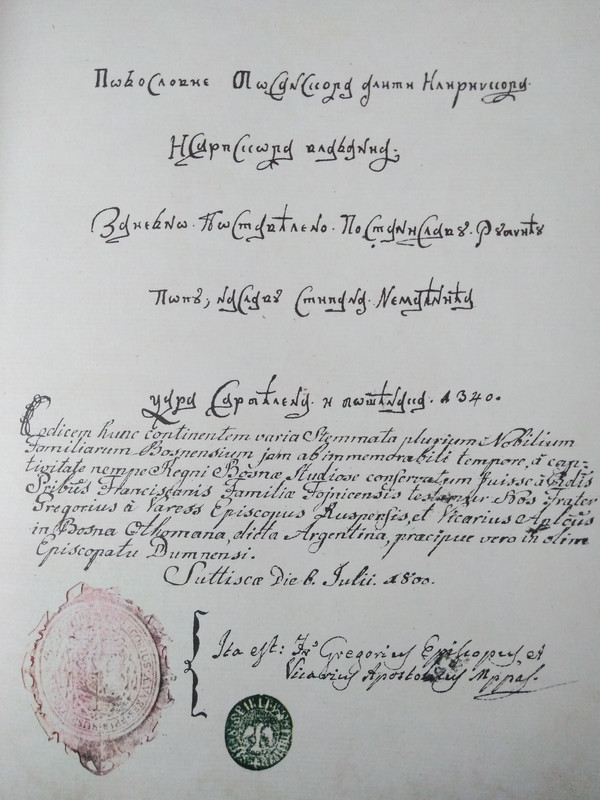 Рѡдословие Бѡсанскога алити Илирискога
И Сарпскога владаниа;
Заиедно. Пѡставꙉлено. По Станиславꙋ. Рꙋпчићꙋ
Попꙋ, на Славꙋ Стипана. Немаꙉнића
цара Сарпꙉлена. и Бошꙉнака. 1340.
Codicem hunc continentem varia Stemmata plurium Nobilium
Familiarum Bosnensium jam ab immemorabili tempore, à cap-
tivitate nempe Regni Bosnæ Studiose conservatum fuisse à Rdis
Pribus Franciscanis Familiæ Fojnicensis testamur Nos Frater
Gregorius à Varess Episcopus Ruspensis, et Vicarius Aplcus
in Bosna Othomana, dicta Argentina, præcipue vero in olim
Episcopatu Dumnensi.
Suttiscæ Die 6. Julii. 1800.
Ita est: Fr. Gregorius Episcopus et
Vicarius Apostolicus Mppas.